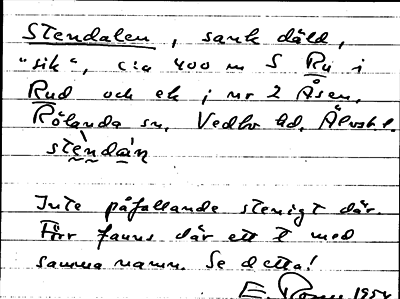 Stendalen, sank däld,
"sik", c:a 400 m S Ru i
Rud och ek i nr 2 Åsen,
Rölanda sn, Vedbo hd, Älvsb. l.
stèndàn
Inte påfallande stenigt där.
Förr fanns där ett t med
samma namn. Se detta!
E. 1954